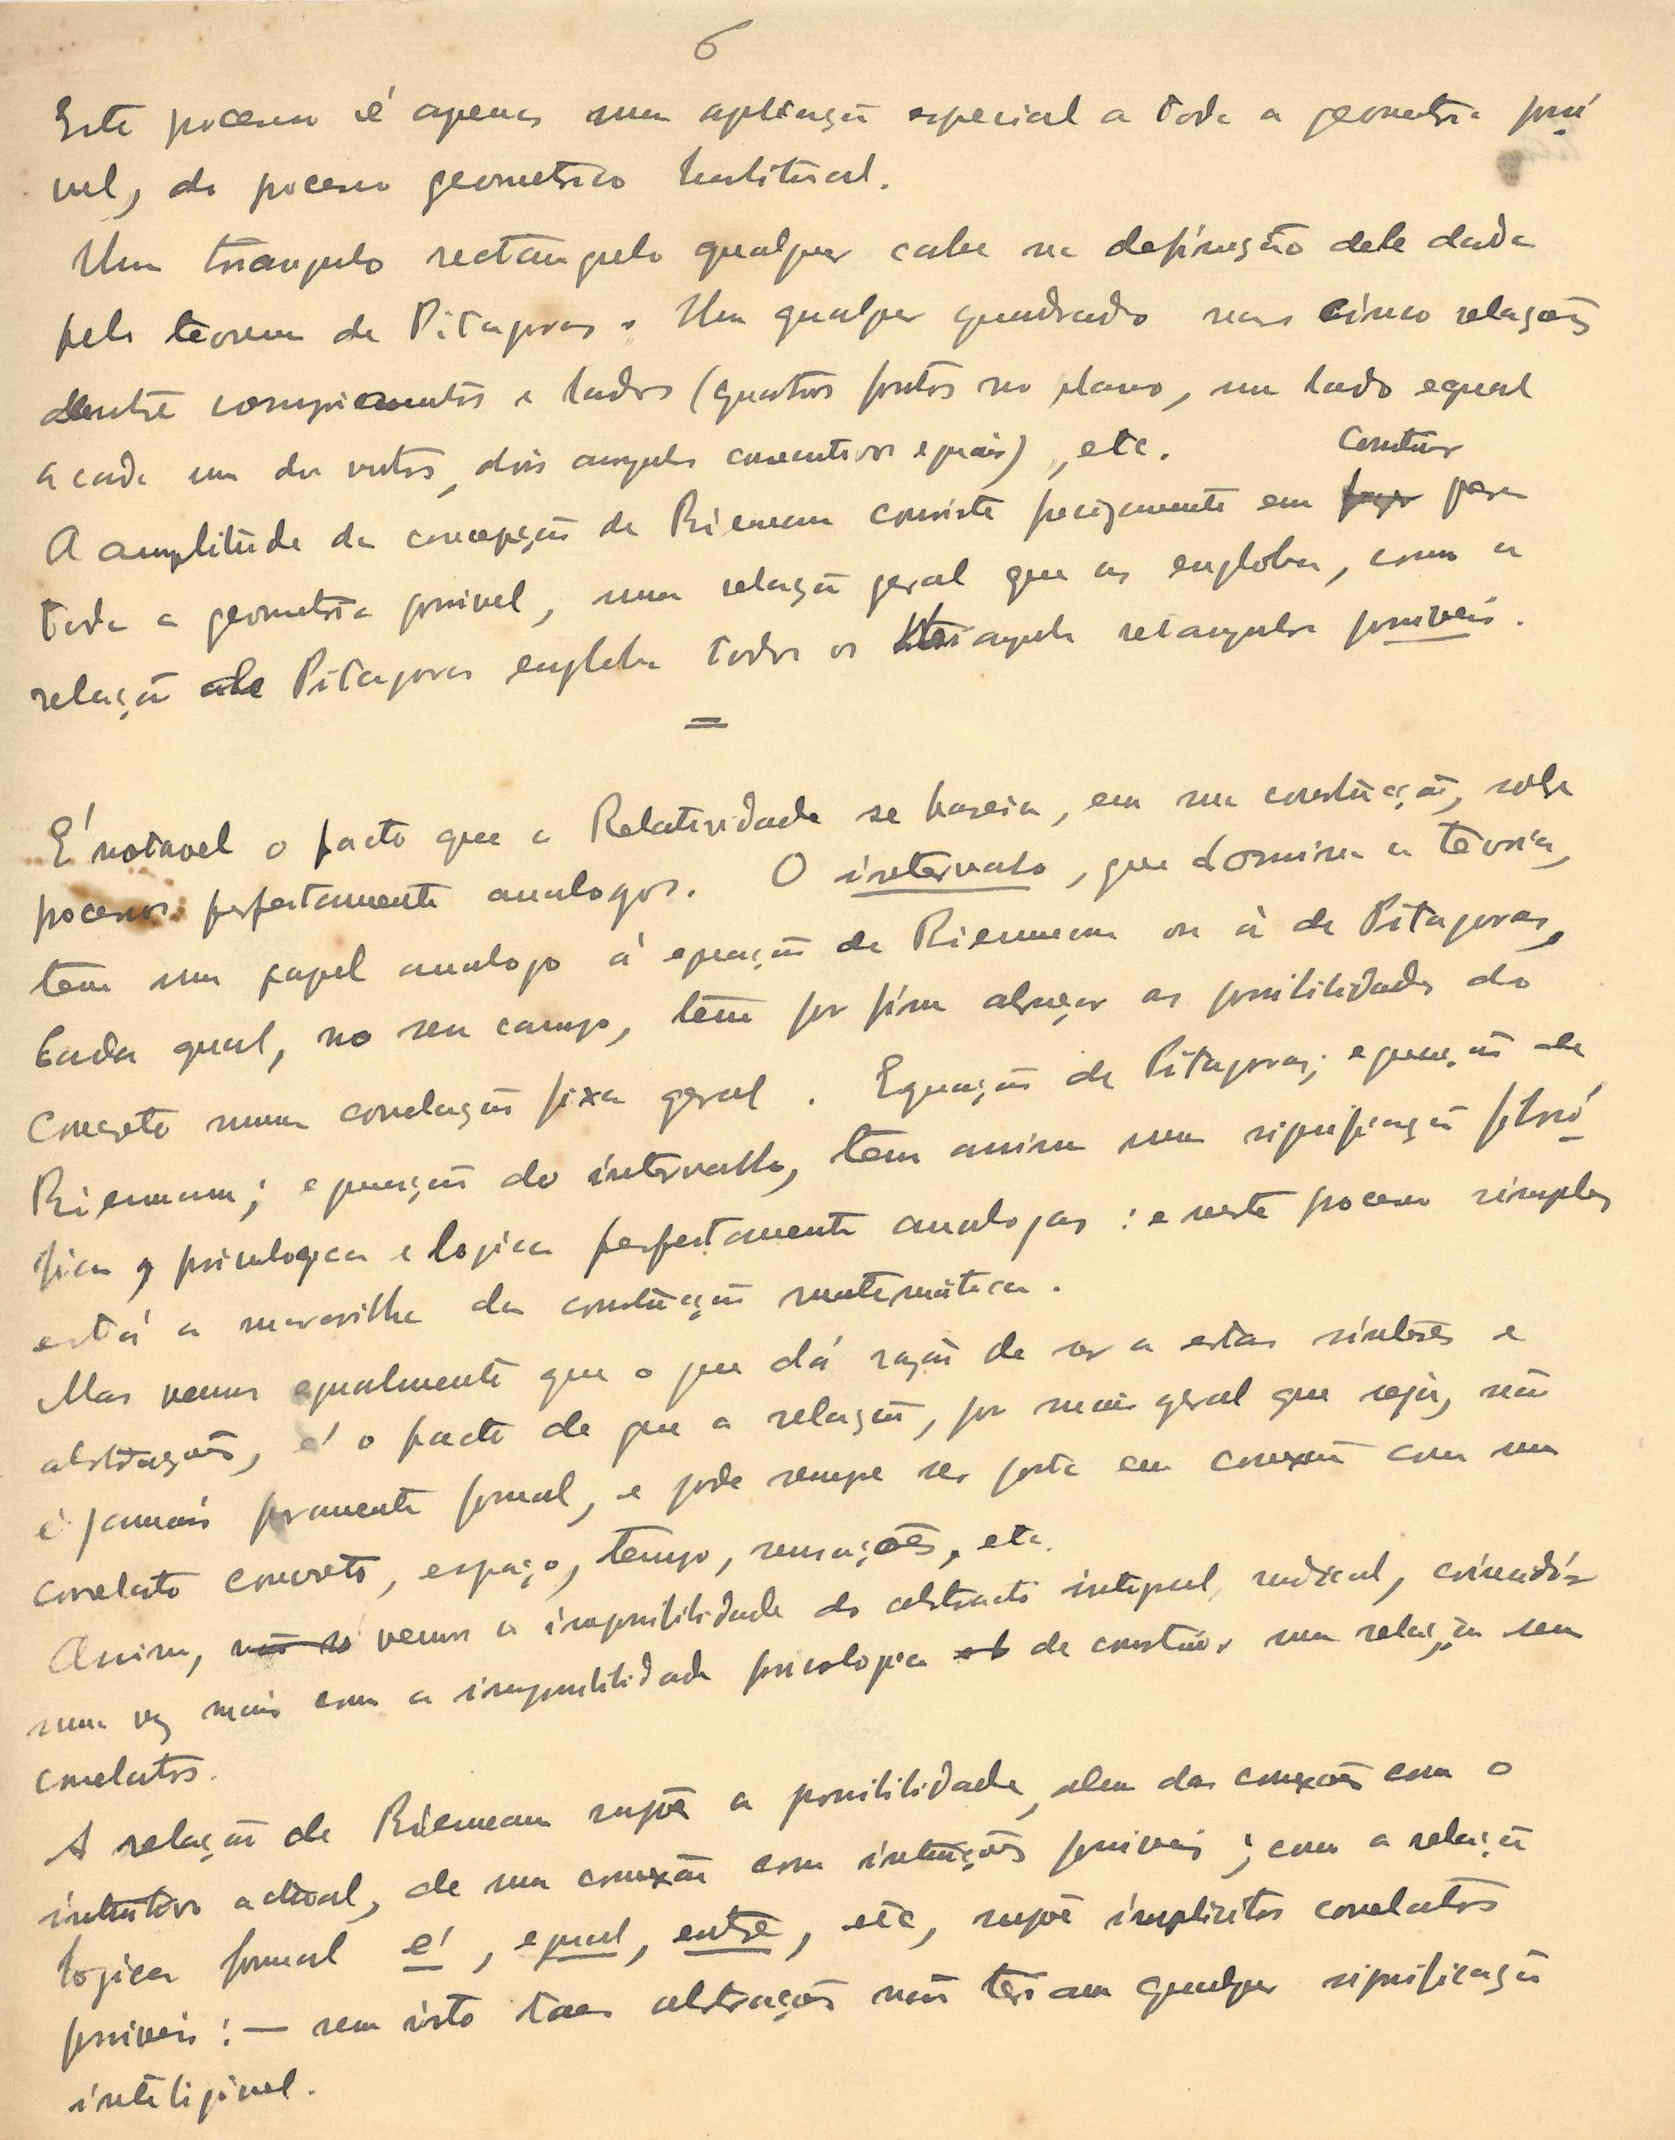 6
Este processo é apenas uma aplicação especial a toda a geometria possi
vel, do processo geometrico habitual.
Um triangulo rectangulo qualquer cabe na definição dele dada
pelo teorema de Pitagoras. Um qualquer quadrado nas cinco relações
dentre comprimentos e lados (quatros pontos no plano, um lado egual
a cada um dos outros, dois angulos consecutivos eguais), etc.
construir
A amplitude da concepção de Riemann consiste precizamente em para
toda a geometria possivel, uma relação geral que as engloba, como a
relação de Pitagoras engloba todos os triangulos retangulos possiveis.
=
É notavel o facto que a Relatividade se baseia, em sua construcção, sobre
processos perfeitamente analogos. O intervalo, que domina a teoria,
tem um papel analogo á equação de Riemann ou à de Pitagoras,
Cada qual, no seu campo, tem por fim abraçar as possibilidades do
Concreto numa correlação fixa geral. Equação de Pitagoras; equação de
Riemann; equação do intervallo, tem assim uma significação filosó
fica, psicologica e logica perfeitamente analogas: e neste processo simples
está a maravilha da construcção matemática.
Mas vemos egualmente que o que dá razão de ser a estas sínteses e
abstrações, é o facto de que a relação, por mais geral que seja, não
é jamais puramente formal, e pode sempre ser posta em conexão com um
correlato concreto, espaço, tempo, sensações, etc.
Assim, não só vemos a impossibilidade do abstracto integral, radical, coincidir
uma vez mais com a impossibilidade psicologica de construir uma relação sem
correlatos.
A relação de Riemann supõe a possibilidade, alem das conexões com o
intuitivo actual, de uma conexão com intuições possiveis; como a relação
logica formal é, egual, entre, etc, supõe implicitos correlatos
possiveis: — sem isto taes abstrações não teriam qualquer significação
inteligivel.